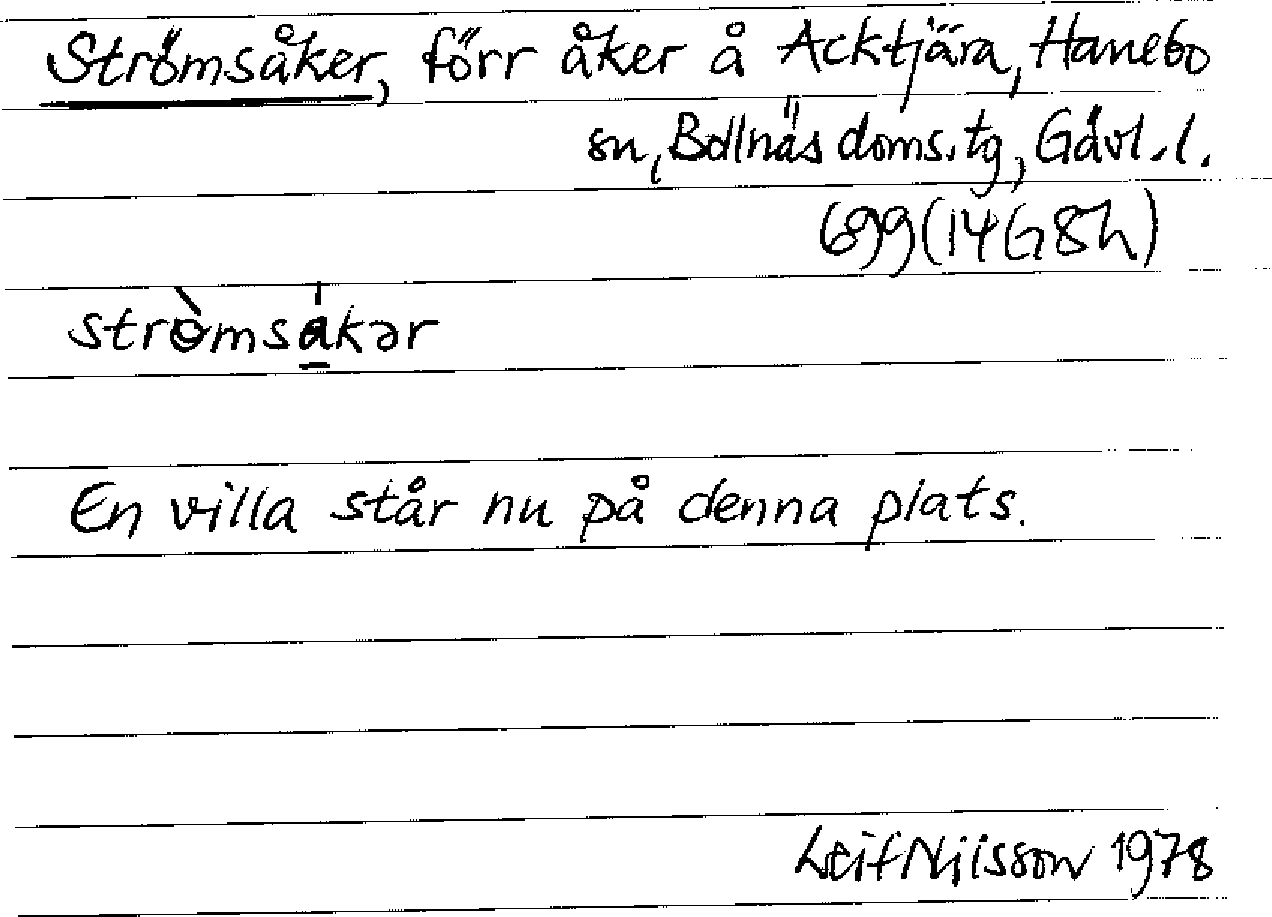 Strömsåker, förr åker å Acktjära, Hanebo
sn, Bollnäs doms. tg, Gävl. l.
699 (14G8h)
strò̱msa̱kər
En villa står nu på denna plats.
Leif Nilsson 1978